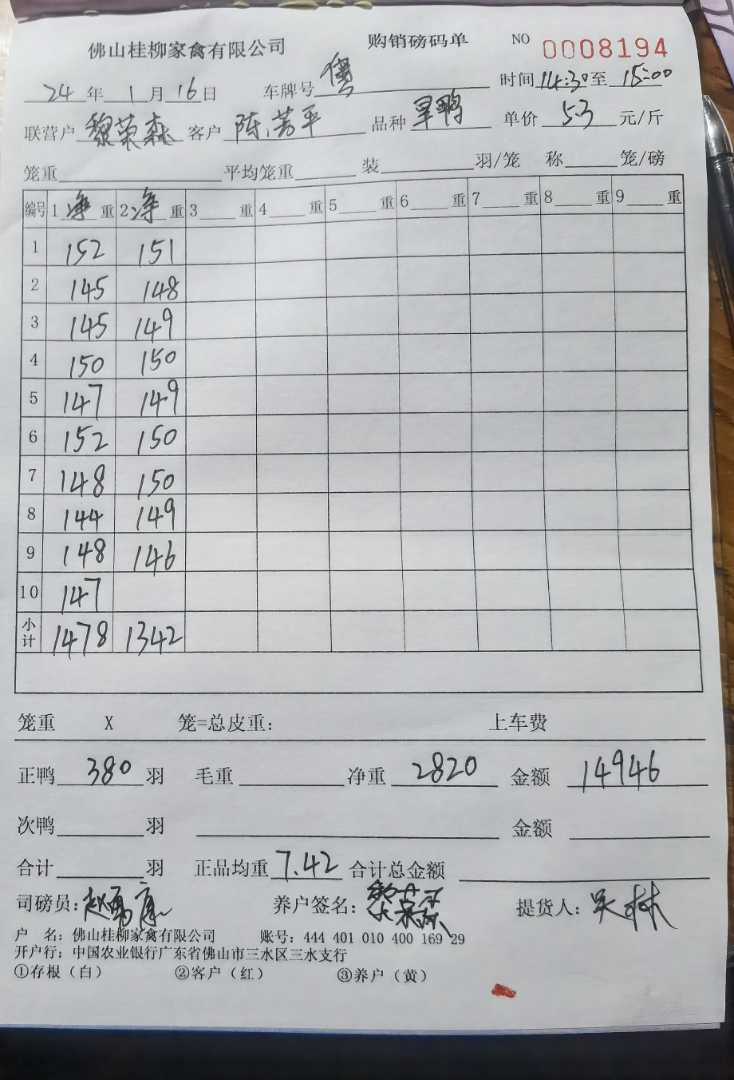 佛山桂柳家禽有限公司 购销磅码单 NO 0008194
24年 1月 16日 车牌号 粤 时间 14:30 至 15:00
联营户 黎荣森 客户 陈芳平 品种 旱鸭 单价 5.3 元/斤
笼重 平均笼重 装 羽/笼 称 笼/磅
编号 1 净 重 2 净 重 3 重 4 重 5 重 6 重 7 重 8 重 9 重
1 152 151
2 145 148
3 145 149
4 150 150
5 147 149
6 152 150
7 148 150
8 144 149
9 148 146
10 147
小计 1478 1342
笼重 X 笼=总皮重: 上车费
正鸭 380 羽 毛重 净重 2820 金额 14946
次鸭 羽 金额
合计 羽 正品均重 7.42 合计总金额
司磅员: 养户签名: 黎荣森 提货人: 吴林
户 名: 佛山桂柳家禽有限公司 账号: 444 401 010 400 169 29
开户行: 中国农业银行广东省佛山市三水区三水支行
①存根（白） ②客户（红） ③养户（黄）